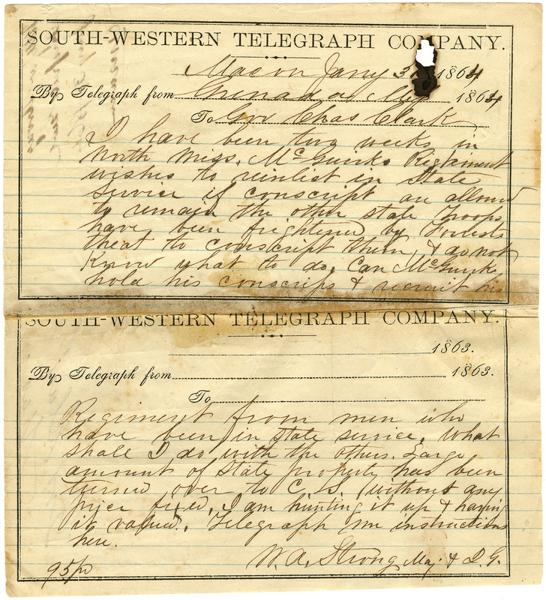 SOUTH-WESTERN TELEGRAPH COMPANY.
Macon Jany 31 1864
By Telegraph from Grenada Mis 1864
To Gov Chas Clark
I have been two weeks in
North Miss. McGuirks Regiment
wishes to reinlist in State
Service if conscript are allowed
to remain the other state troops
have been frightened by Forests
threat to conscript them, & do not
Know what to do, Can McGuirk
hold his conscrips & recruit his
SOUTH-WESTERN TELEGRAPH COMPANY.
1863.
By Telegraph from 1863.
To
Regiment from men who
have been in state service, What
Shall I do with the others. Large
amount of State property has been
turned over to C.S. (without any
price fixed, I am hunting it up & having
it valued. Telegraph me instructions
here.
W.A. Strong Maj & I.G.
95 pd